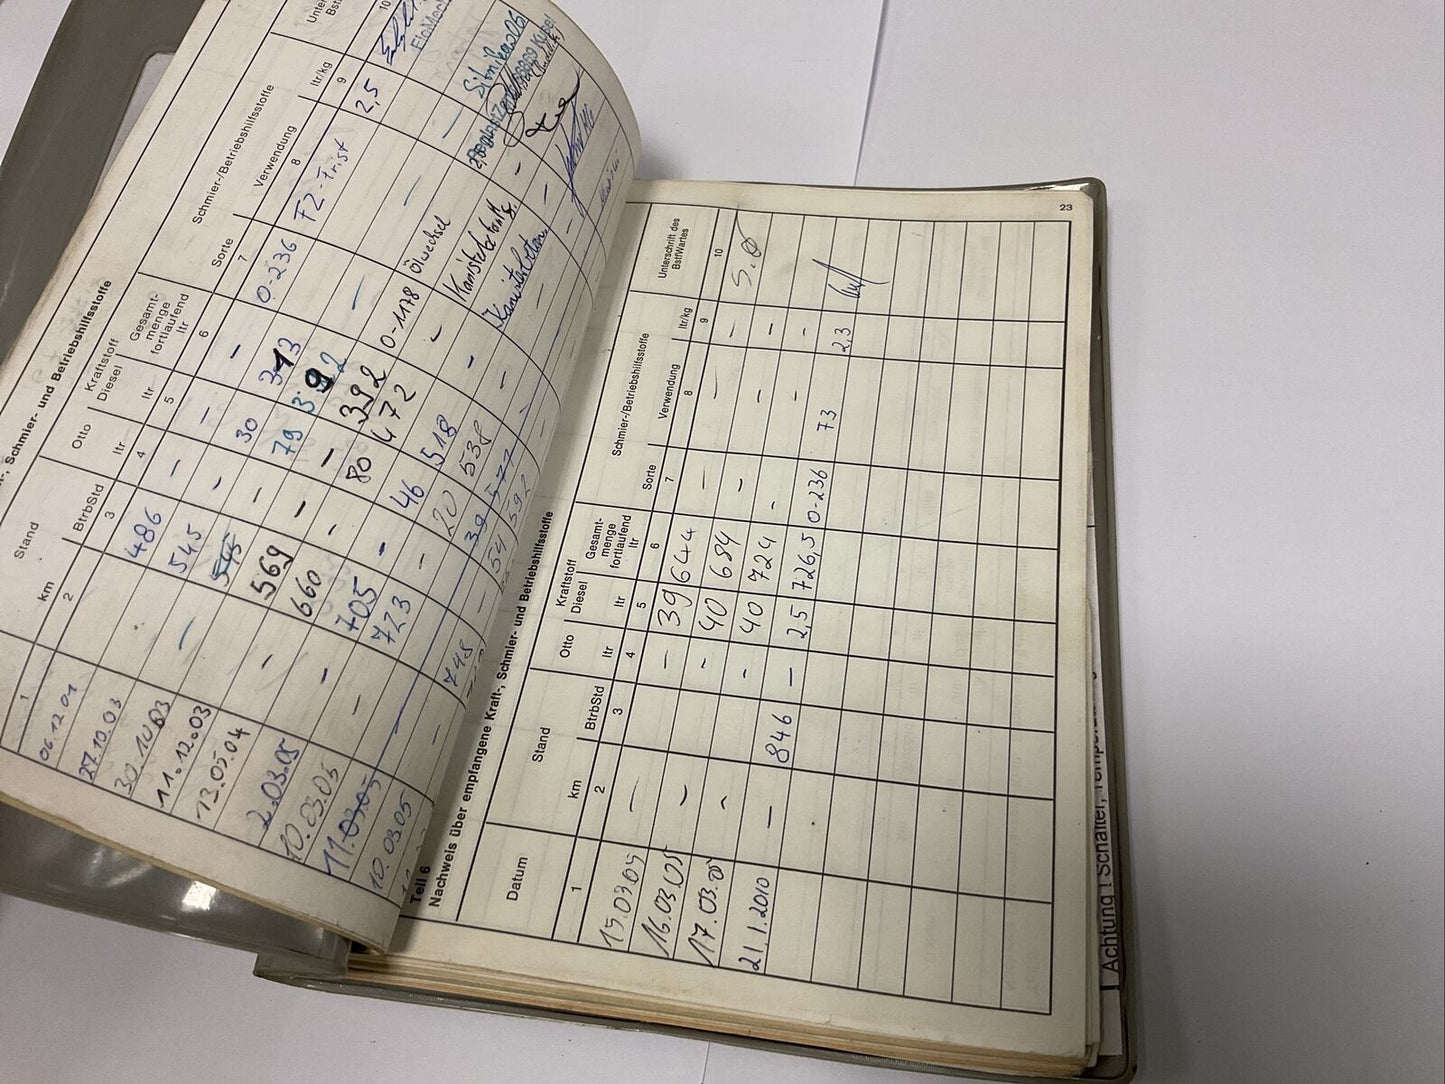 Schmier- und Betriebshilfsstoffe
Stand
Kraftstoff
Schmier-/Betriebshilfsstoffe
km
BtrbStd
Otto
ltr
Diesel
ltr
Gesamt-
menge
fortlaufend
ltr
Sorte
Verwendung
ltr/kg
1
2
3
4
5
6
7
8
9
10
06.12.01 486 - - - 0-236 FZ-Frist 2,5
27.10.03 545 - 30 313
30.10.03 545 - 79 392
11.12.03 569 - - 392 0-1178 Ölwechsel
13.05.04 - 660 - 80 472 -
2.03.05 - 705 - 46 518 -
10.03.05 - 723 - 20 538 -
11.03.05 39 577
10.03.05 - 748 54 592
Teil 6
Nachweis über empfangene Kraft-, Schmier- und Betriebshilfsstoffe
23
Datum
Stand
Kraftstoff
Schmier-/Betriebshilfsstoffe
Unterschrift des
BstfWartes
km
BtrbStd
Otto
ltr
Diesel
ltr
Gesamt-
menge
fortlaufend
ltr
Sorte
Verwendung
ltr/kg
1
2
3
4
5
6
7
8
9
10
15.03.05 - - 39 644 - - -
16.03.05 - - 40 684 - - -
17.03.05 - - 40 724 - - -
21.1.2010 - 846 - 2,5 726,5 0-236 73 2,3
Achtung! Schalter,